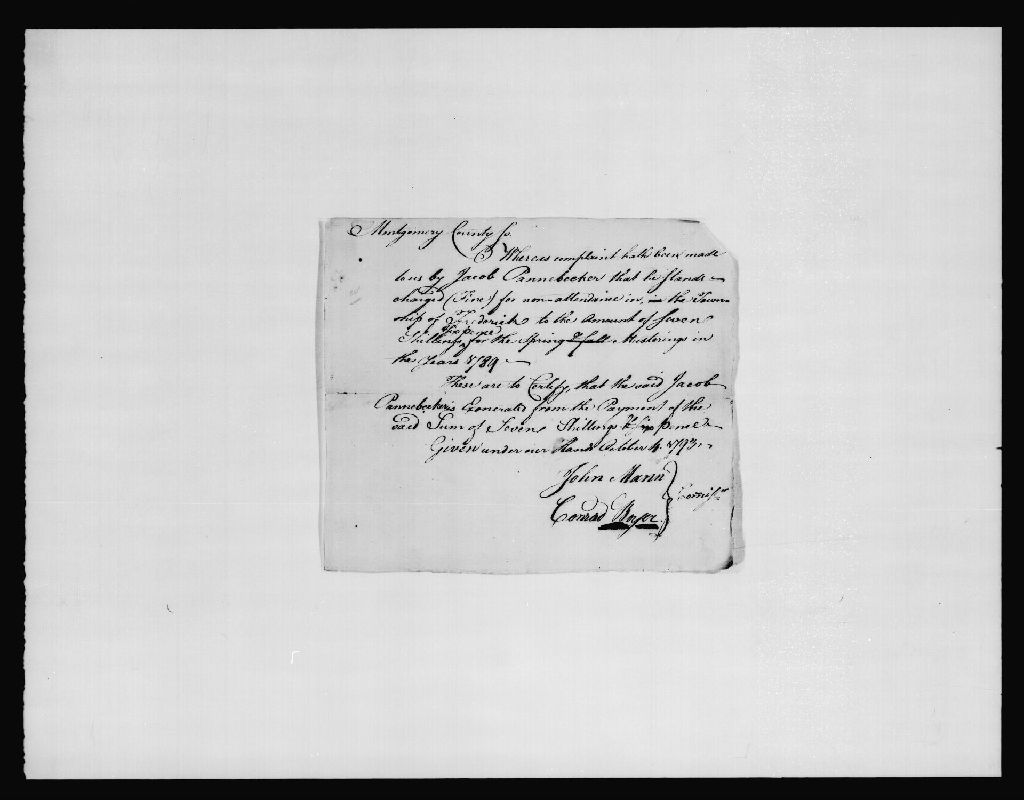 Montgomery County ss.
Whereas complaint hath been made
to us by Jacob Pannebecker that he stands
charged (Fine) for non-attendance in, in the Town-
ship of Frederick to the Amount of Seven
Shillings & Sixpence for the Spring & fall Musterings in
the Years 1789
These are to Certify, that the said Jacob
Pannebecker is Exonerated from the Payment of the
said Sum of Seven Shillings & Six pence
Given under our Hands October 4. 1793
John Mann
Conrad Boyer